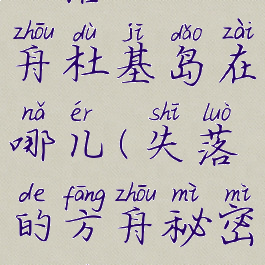 zhōu dù jī dǎo zài
舟杜基岛在
nǎ ér shī luò
哪儿(失落
de fāng zhōu mì mì
的方舟秘密